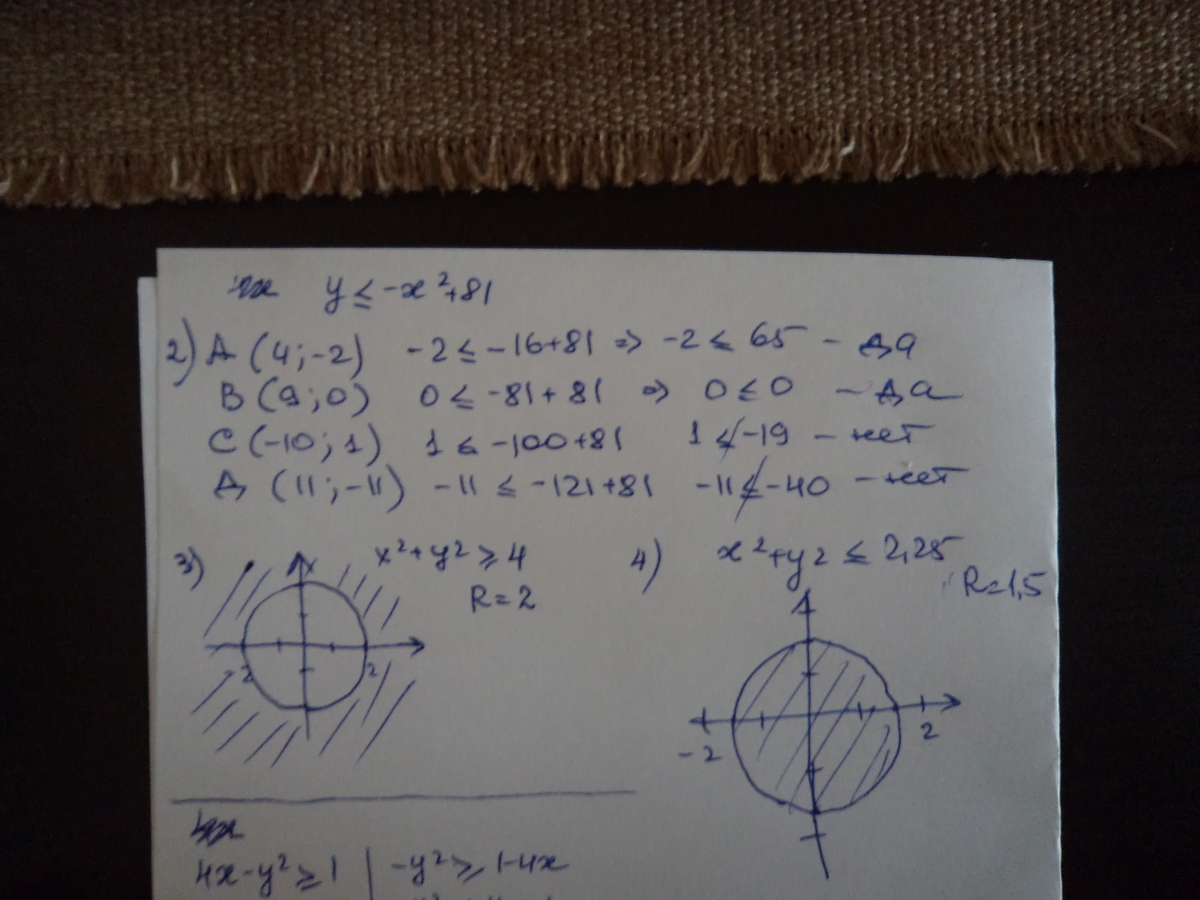 y ≤ -x²+81
2) А (4;-2) -2 ≤ -16+81 ⇒ -2 ≤ 65 - да
В (9;0) 0 ≤ -81+81 ⇒ 0 ≤ 0 - да
С (-10;1) 1 ≤ -100+81 1 ≰ -19 - нет
Д (11;-11) -11 ≤ -121+81 -11 ≰ -40 - нет
3) x²+y² ≥ 4
R=2
-2 2
4) x²+y² ≤ 2,25
R=1,5
-2 2
4x-y² ≥ 1 | -y² ≥ 1-4x